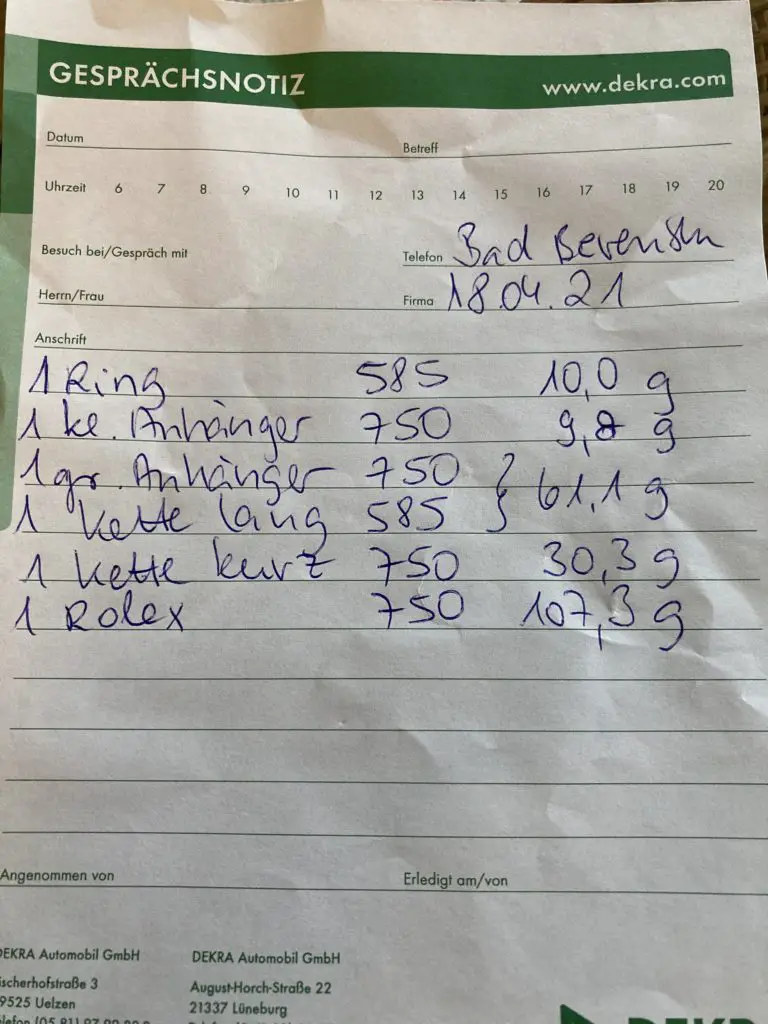 GESPRÄCHSNOTIZ www.dekra.com
Datum Betreff
Uhrzeit 6 7 8 9 10 11 12 13 14 15 16 17 18 19 20
Besuch bei/Gespräch mit Telefon Bad Bevensen
Herrn/Frau Firma 18.04.21
Anschrift
1 Ring 585 10,0 g
1 kl. Anhänger 750 g
1 gr. Anhänger 750 } 61,1 g
1 Kette lang 585
1 Kette kurz 750 30,3 g
1 Rolex 750 107,3 g
Angenommen von Erledigt am/von
DEKRA Automobil GmbH DEKRA Automobil GmbH
ischerhofstraße 3 August-Horch-Straße 22
9525 Uelzen 21337 Lüneburg